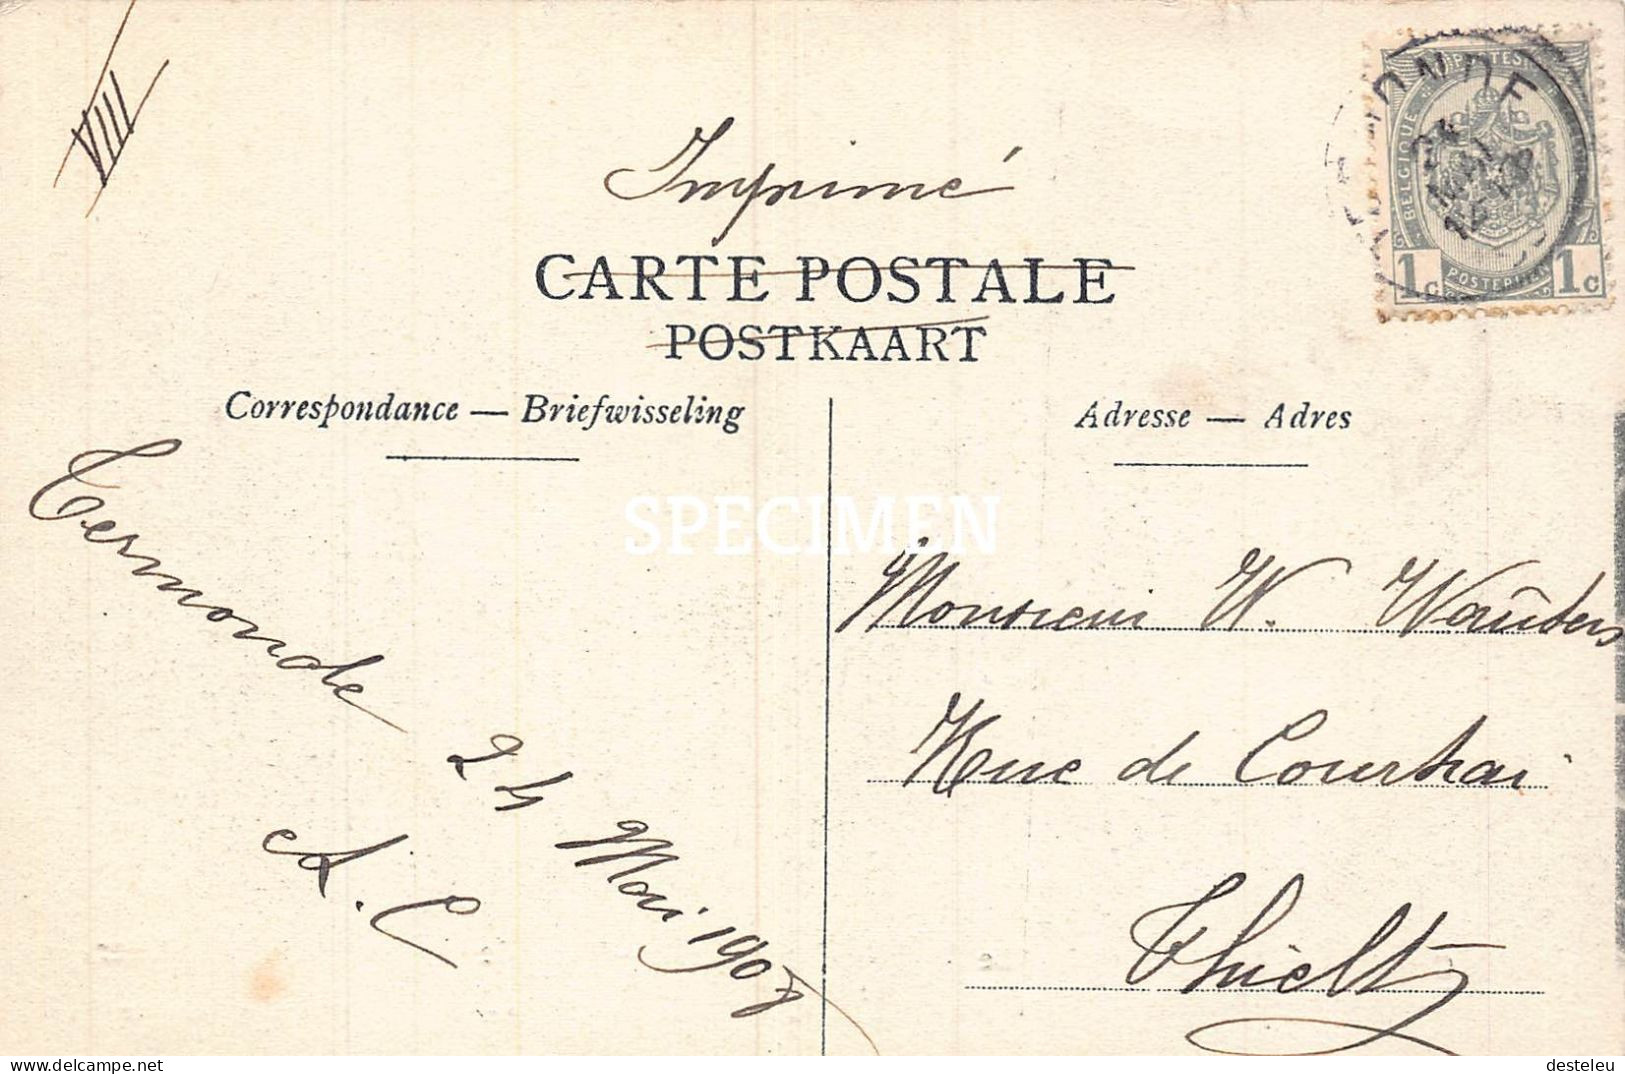 VIII
Imprimé
CARTE POSTALE
POSTKAART
Correspondance — Briefwisseling
Adresse — Adres
BELGIQUE
1c POSTERIJEN 1c
24
MAI
SPECIMEN
Termonde
24 Mai 1907
A. C.
Monsieur W. Waûters
Rue de Courtrai
Thielt
delcampe.net
desteleu